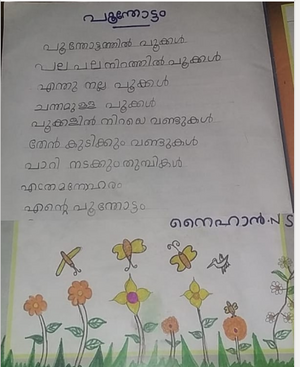 പൂന്തോട്ടം
പൂന്തോട്ടത്തിൽ പൂക്കൾ
പല പല നിറത്തിൽ പൂക്കൾ
എന്തു നല്ല പൂക്കൾ
ചന്തമുള്ള പൂക്കൾ
പൂക്കളിൽ നിറയെ വണ്ടുകൾ
തേൻ കുടിക്കും വണ്ടുകൾ
പാറി നടക്കും തുമ്പികൾ
എന്തു മനോഹരം
എന്റെ പൂന്തോട്ടം
നൈഹാൻ.N S